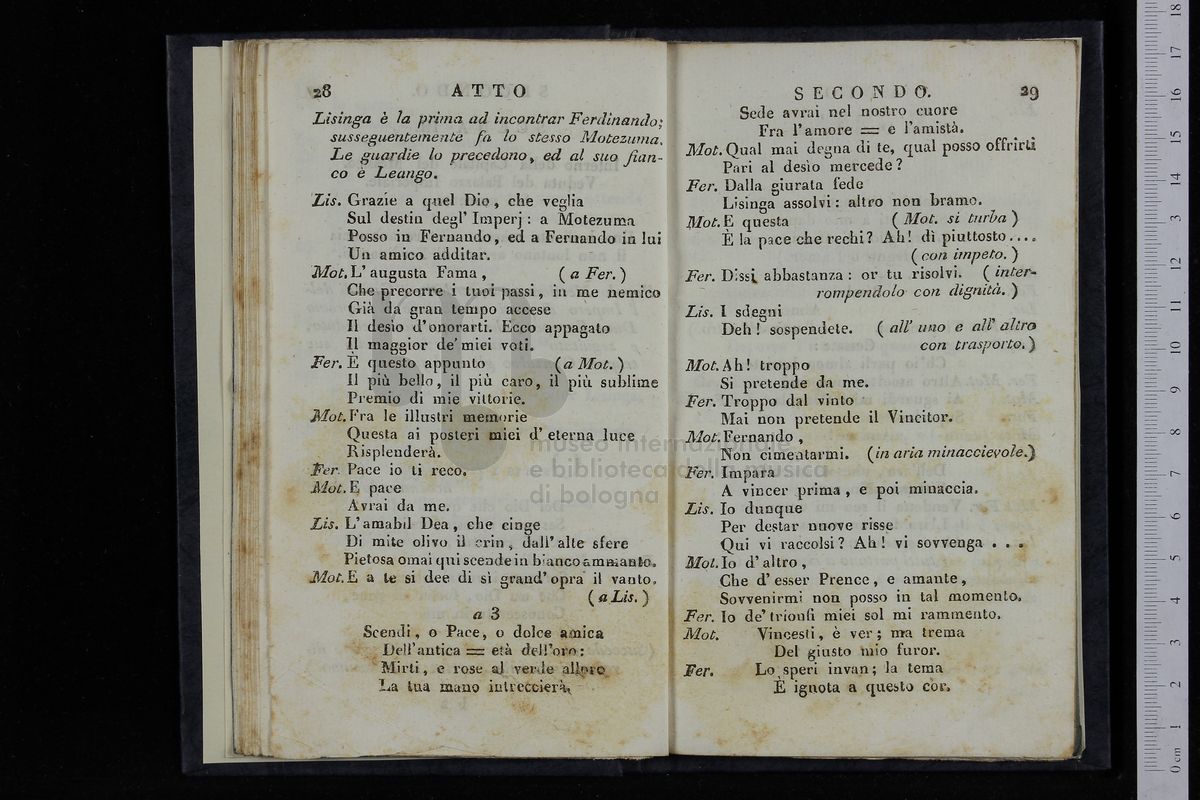 28 ATTO
Lisinga è la prima ad incontrar Ferdinando;
susseguentemente fa lo stesso Motezuma.
Le guardie lo precedono, ed al suo fian-
co è Leango.
Lis. Grazie a quel Dio, che veglia
Sul destin degl' Imperj: a Motezuma
Posso in Fernando, ed a Fernando in lui
Un amico additar.
Mot. L' augusta Fama, (a Fer.)
Che precorre i tuoi passi, in me nemico
Già da gran tempo accese
Il desìo d'onorarti. Ecco appagato
Il maggior de' miei voti.
Fer. È questo appunto (a Mot.)
Il più bello, il più caro, il più sublime
Premio di mie vittorie.
Mot. Fra le illustri memorie
Questa ai posteri miei d' eterna luce
Risplenderà.
Fer. Pace io ti reco.
Mot. E pace
Avrai da me.
Lis. L' amabil Dea, che cinge
Di mite olivo il crin, dall' alte sfere
Pietosa omai qui scende in bianco ammanto.
Mot. E a te si dee di sì grand' opra il vanto.
(a Lis.)
a 3
Scendi, o Pace, o dolce amica
Dell'antica = età dell'oro:
Mirti, e rose al verde alloro
La tua mano intreccierà.
SECONDO. 29
Sede avrai nel nostro cuore
Fra l'amore = e l'amistà.
Mot. Qual mai degna di te, qual posso offrirti
Pari al desìo mercede?
Fer. Dalla giurata fede
Lisinga assolvi: altro non bramo.
Mot. E questa (Mot. si turba)
È la pace che rechi? Ah! dì piuttosto....
(con impeto.)
Fer. Dissi abbastanza: or tu risolvi. (inter-
rompendolo con dignità.)
Lis. I sdegni
Deh! sospendete. (all' uno e all' altro
con trasporto.)
Mot. Ah! troppo
Si pretende da me.
Fer. Troppo dal vinto
Mai non pretende il Vincitor.
Mot. Fernando,
Non cimentarmi. (in aria minaccievole.)
Fer. Impara
A vincer prima, e poi minaccia.
Lis. Io dunque
Per destar nuove risse
Qui vi raccolsi? Ah! vi sovvenga . . .
Mot. Io d' altro,
Che d' esser Prence, e amante,
Sovvenirmi non posso in tal momento.
Fer. Io de' trionfi miei sol mi rammento.
Mot. Vincesti, è ver; ma trema
Del giusto mio furor.
Fer. Lo speri invan; la tema
È ignota a questo cor.
museo internazionale
e biblioteca della musica
di bologna
0 cm 1 2 3 4 5 6 7 8 9 10 11 12 13 14 15 16 17 18